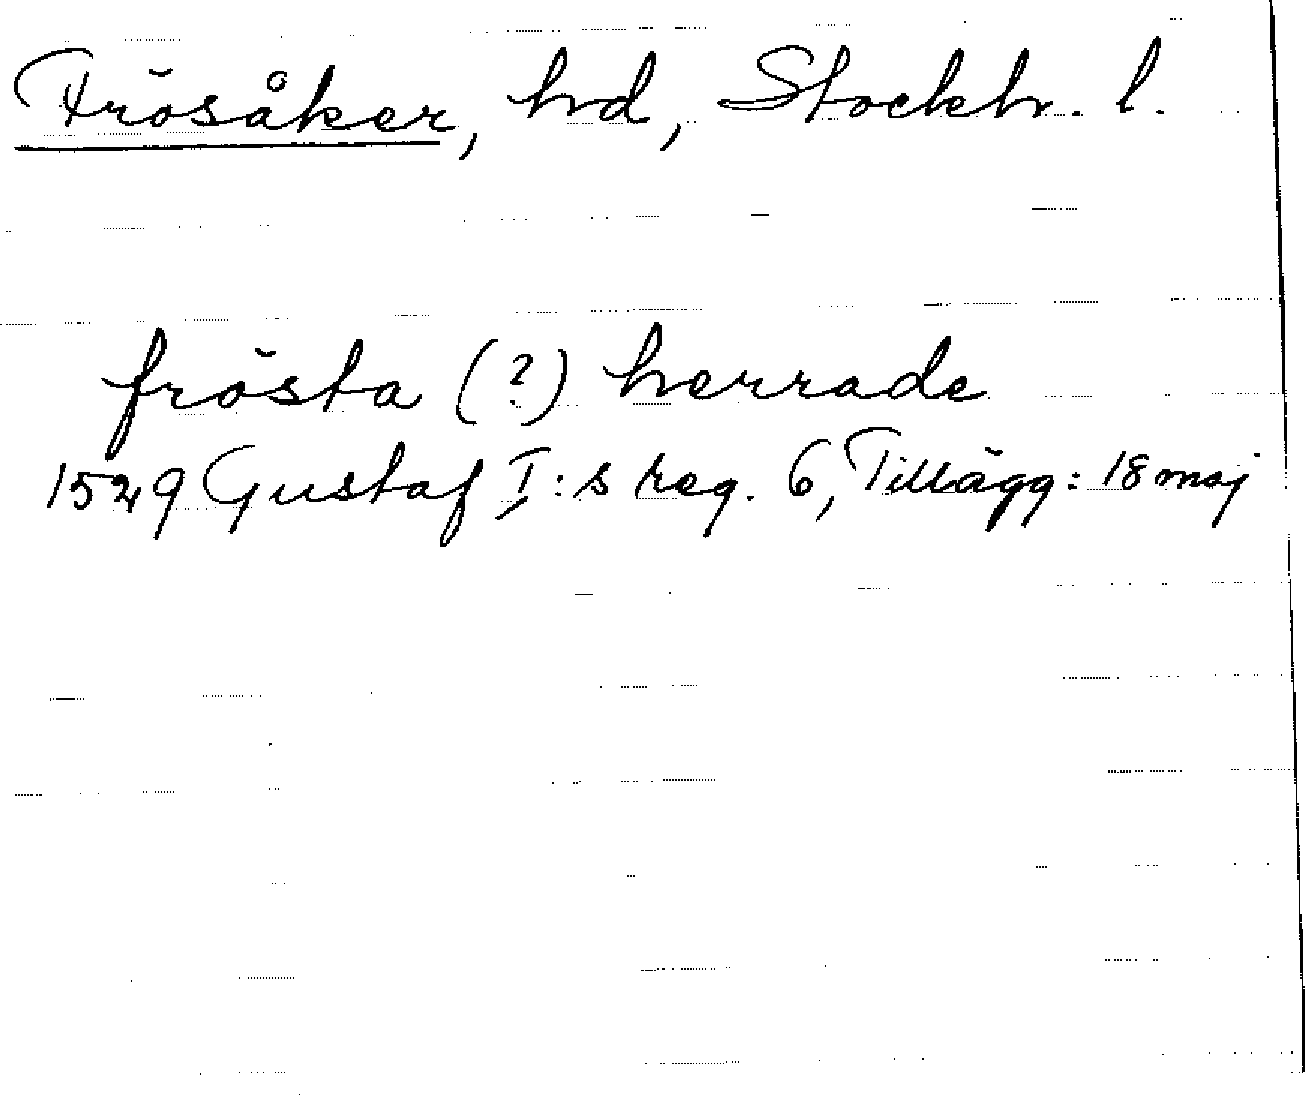 Frösåker, hd, Stockh. l.
frösta (?) herrade
1529 Gustaf I:s reg. 6, Tillägg: 18 maj